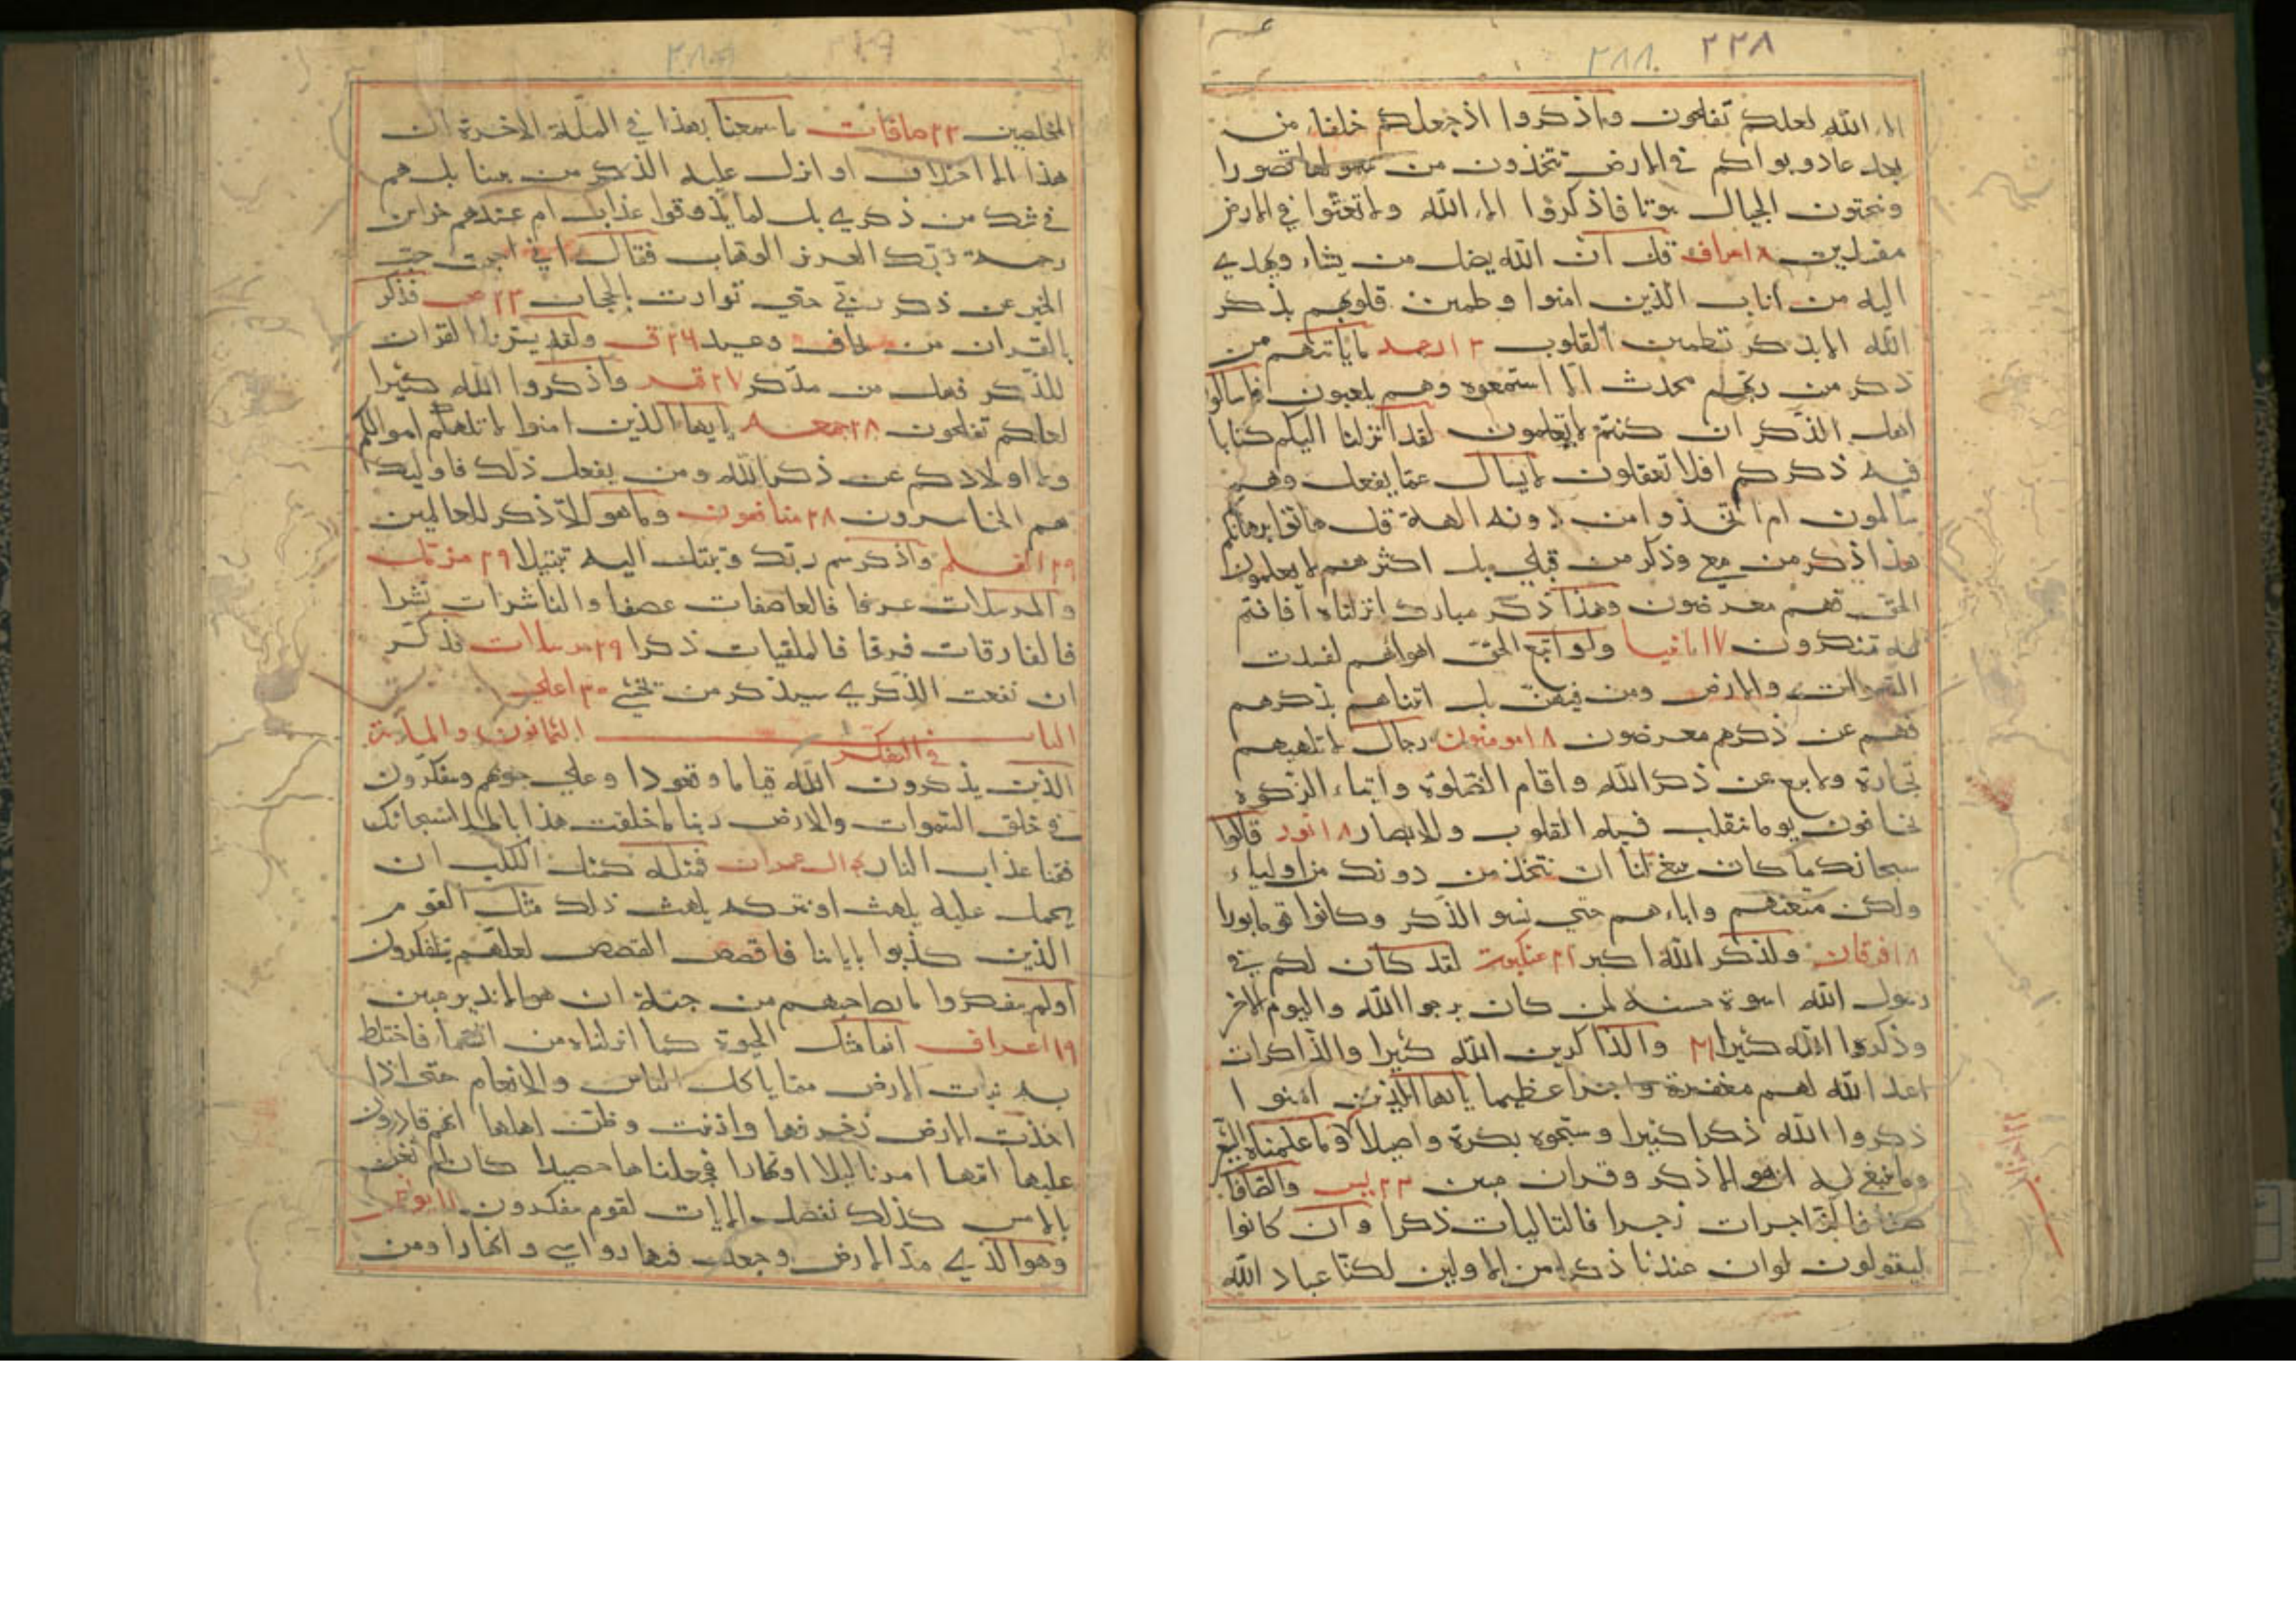 ٢٨٨ ٢٢٨
الاء الله لعلكم تفلحون واذكروا اذ جعلكم خلفاء من
بعد عاد وبواكم في الارض تتخذون من سهولها قصورا
وتنحتون الجبال بيوتا فاذكروا الاء الله ولا تعثوا في الارض
مفسدين ٨ اعراف قل ان الله يضل من يشاء ويهدي
اليه من اناب الذين امنوا وطمين قلوبهم بذكر
الله الا بذكر تطمين القلوب ٣ الرعد ما ياتيهم من
ذكر من ربهم محدث الا استمعوه وهم يلعبون فاسالوا
اهل الذكر ان كنتم لا تعلمون لقد انزلنا اليكم كتابا
فيه ذكركم افلا تعقلون لا يسال عما يفعل وهم
سالمون ام اتخذوا من دونه الهة قل هاتوا برهانكم
هذا ذكر من مع وذكر من قبلي بل اكثرهم لا يعلمون
الحق فهم معرضون وهذا ذكر مبارك انزلناه افانتم
له تنكرون ١٧ انبيا ولو اتبع الحق اهوائهم لفسدت
السموات والارض ومن فيهن بل اتيناهم بذكرهم
فهم عن ذكرهم معرضون ١٨ مومنون رجال لا تلهيهم
تجارة ولا بيع عن ذكر الله واقام الصلوة وايتاء الزكوة
يخافون يوما تتقلب فيه القلوب والابصار ١٨ نور قالوا
سبحانك ما كان ينبغي لنا ان نتخذ من دونك من اولياء
ولكن متعتهم واباءهم حتى نسو الذكر وكانوا قوما بورا
١٨ فرقان ولذكر الله اكبر ٢١ عنكبوت لقد كان لكم في
رسول الله اسوة حسنه لمن كان يرجوا الله واليوم الاخر
وذكروا الله كثيرا ٢١ والذاكرين الله كثيرا والذاكرات
اعد الله لهم مغفرة واجرا عظيما يا ايها الذين امنوا ا
ذكروا الله ذكرا كثيرا وسبحوه بكرة واصيلا وما علمناه الشعر
وما ينبغي له ان هو الا ذكر وقران مبين ٢٣ يس والصافات
صفا فالزاجرات زجرا فالتاليات ذكرا وان كانوا
ليقولون لو ان عندنا ذكرا من الاولين لكنا عباد الله
المخلصين ٢٣ صافات ما سمعنا بهذا في الملة الاخرة ان
هذا الا اختلاف او انزل عليه الذكر من بيننا بل هم
في شك من ذكري بل لما يذوقوا عذاب ام عندهم خزاين
رحمة ربك العزيز الوهاب فقال اني احببت حب
الخير عن ذكر ربي حتى توارت بالحجاب ٢٣ ص فذكر
بالقران من يخاف وعيد ٢٦ ق ولقد يسرنا القران
للذكر فهل من مذكر ٢٧ قمر واذكروا الله كثيرا
لعلكم تفلحون ٢٨ جمعه يا ايها الذين امنوا لا تلهكم اموالكم
ولا اولادكم عن ذكر الله ومن يفعل ذلك فاوليك
هم الخاسرون ٢٨ منافقون وما هو الا ذكر للعالمين
٢٩ القلم واذكر سم ربك وتبتل اليه تبتيلا ٢٩ مزمل
والمرسلات عرفا فالعاصفات عصفا والناشرات نشرا
فالفارقات فرقا فالملقيات ذكرا ٢٩ مرسلات فذكر
ان نفعت الذكري سيذكر من يخشي ٣٠ اعلي
الباب الثمانون والمائة
في التفكر
الذين يذكرون الله قياما وقعودا وعلي جنوبهم ويتفكرون
في خلق السموات والارض ربنا ما خلقت هذا باطلا سبحانك
فقنا عذاب النار ال عمران فمثله كمثل الكلب ان
يحمل عليه يلهث او تتركه يلهث ذلك مثل القوم
الذين كذبوا باياتنا فاقصص القصص لعلهم يتفكرون
اولم يتفكروا ما بصاحبهم من جنة ان هو الا نذير مبين
٩ اعراف انما مثل الحيوة كما انزلناه من السماء فاختلط
به نبات الارض مما ياكل الناس والانعام حتى اذا
اخذت الارض زخرفها وازينت وظن اهلها انهم قادرون
عليها اتيها امرنا ليلا او نهارا فجعلناها حصيدا كان لم تغن
بالامس كذلك نفصل الايات لقوم يتفكرون ١١ يونس
وهو الذي مد الارض وجعل فيها رواسي وانهارا ومن